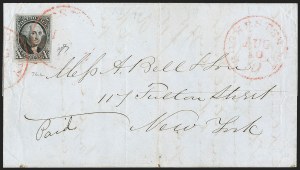 Mess A. Bell & Son
117 Fulton Street
Paid
New York
AUG
10